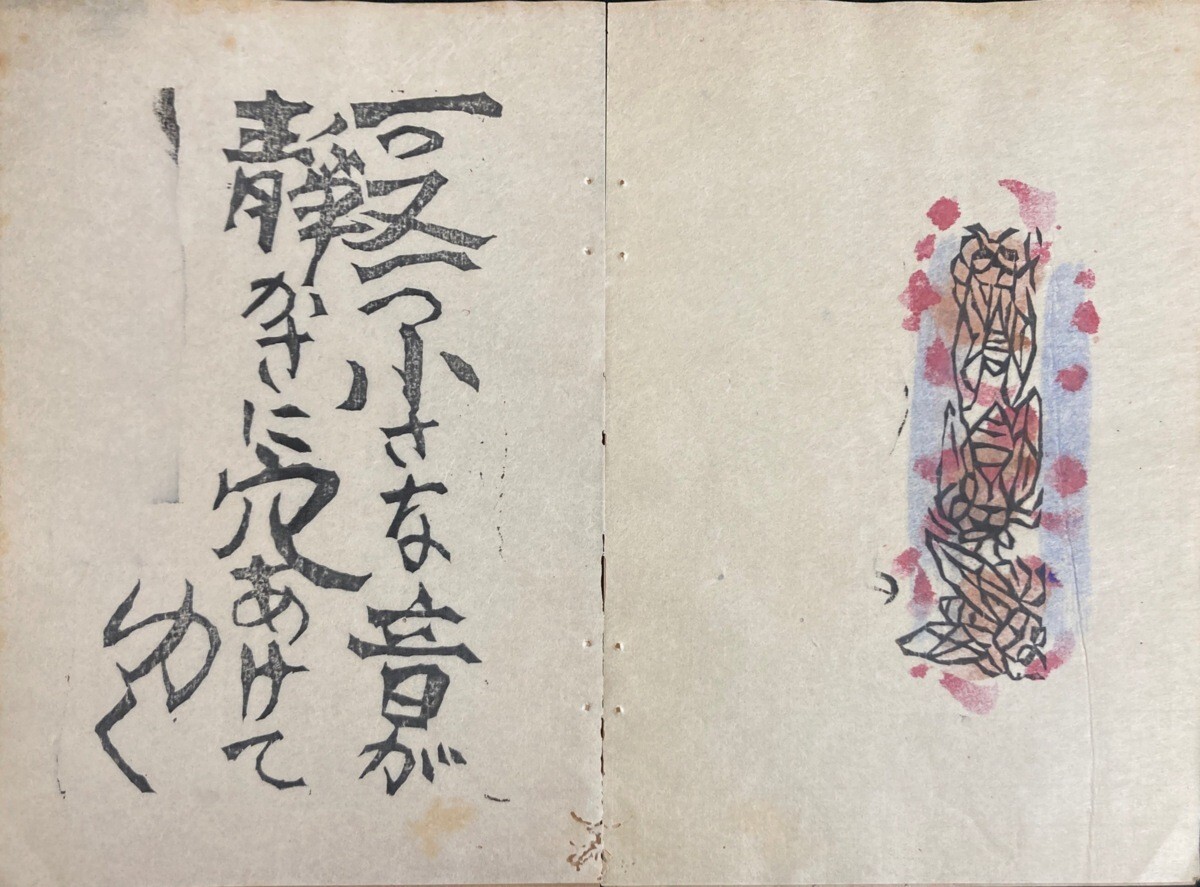 一つ又一つ小さな音が
靜かさに穴あけて
ゆく